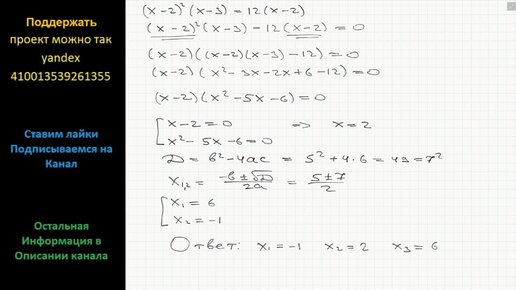 Поддержать
проект можно так
yandex
410013539261355
Ставим лайки
Подписываемся на
Канал
Остальная
Информация в
Описании канала
(x-2)²(x-3)=12(x-2)
(x-2)²(x-3)-12(x-2)=0
(x-2)((x-2)(x-3)-12)=0
(x-2)(x²-3x-2x+6-12)=0
(x-2)(x²-5x-6)=0
[x-2=0 ⇒ x=2
x²-5x-6=0
D=b²-4ac = 5²+4·6=49=7²
x₁,₂ = (-b±√D)/2a = (5±7)/2
[x₁=6
x₂=-1
Ответ: x₁=-1 x₂=2 x₃=6